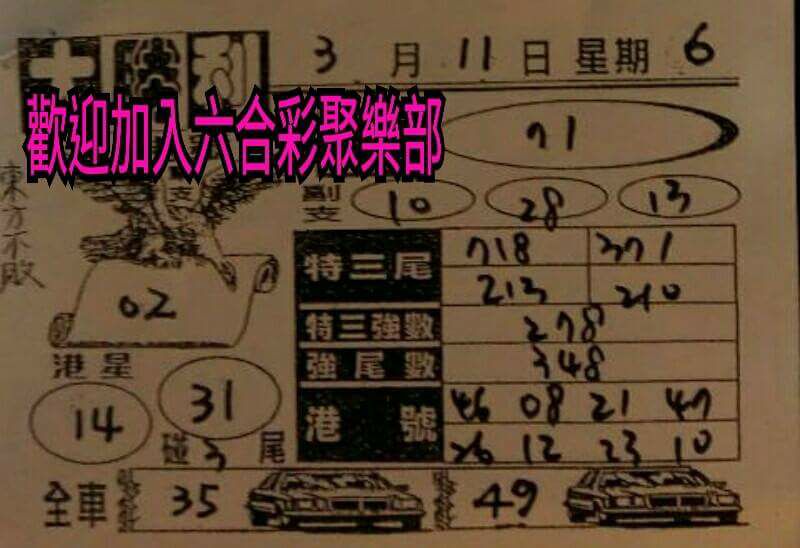 3月11日星期6
歡迎加入六合彩聚樂部
71
東方不敗
副支 10 28 13
02
特三尾 718 371
213 210
特三強數 278
強尾數 348
港星
14 31
碰3尾
港號 46 08 21 47
26 12 23 10
全車 35 49